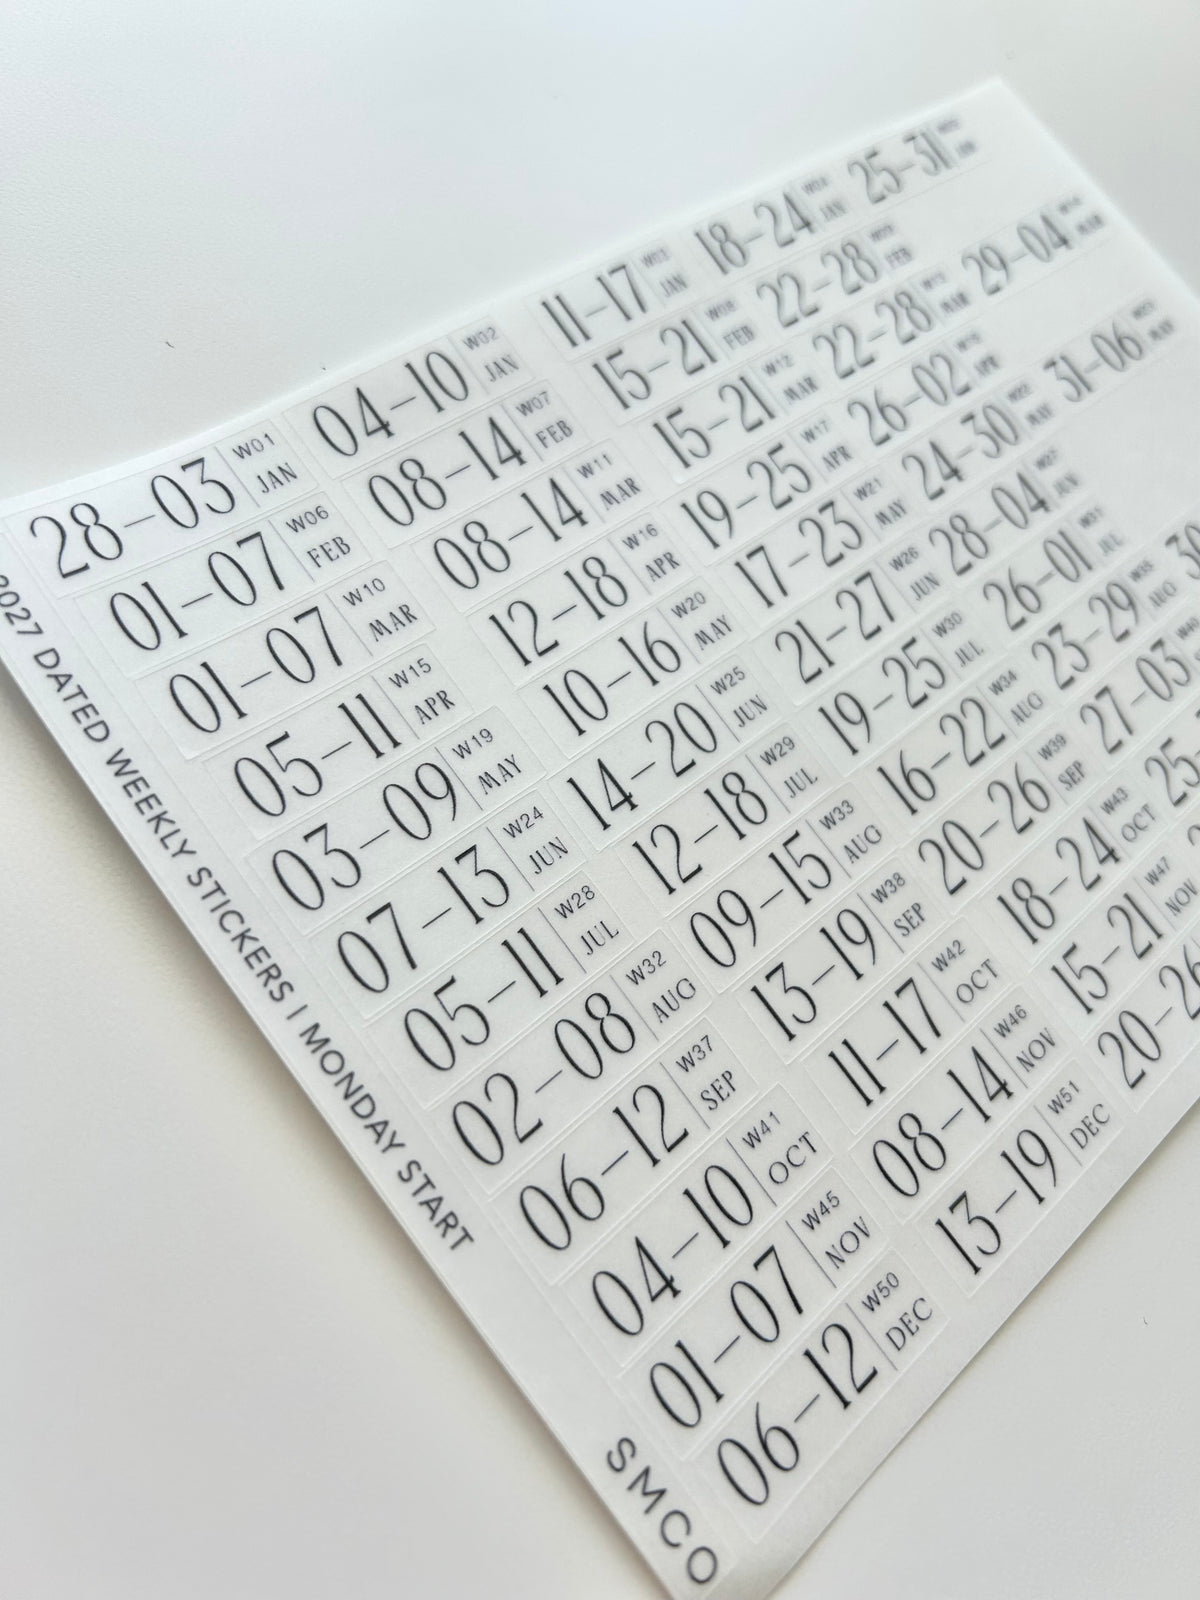 28–03 W01 JAN 04–10 W02 JAN 11–17 W03 JAN 18–24 W04 JAN 25–31 JAN
01–07 W06 FEB 08–14 W07 FEB 15–21 W08 FEB 22–28 W09 FEB
01–07 W10 MAR 08–14 W11 MAR 15–21 W12 MAR 22–28 W13 MAR 29–04 W14 MAR
05–11 W15 APR 12–18 W16 APR 19–25 W17 APR 26–02 W18 APR
03–09 W19 MAY 10–16 W20 MAY 17–23 W21 MAY 24–30 W22 MAY 31–06 W23 MAY
07–13 W24 JUN 14–20 W25 JUN 21–27 W26 JUN 28–04 W27 JUN
05–11 W28 JUL 12–18 W29 JUL 19–25 W30 JUL 26–01 W31 JUL
02–08 W32 AUG 09–15 W33 AUG 16–22 W34 AUG 23–29 W35 AUG 30
06–12 W37 SEP 13–19 W38 SEP 20–26 W39 SEP 27–03 W40
04–10 W41 OCT 11–17 W42 OCT 18–24 W43 OCT 25–
01–07 W45 NOV 08–14 W46 NOV 15–21 W47 NOV
06–12 W50 DEC 13–19 W51 DEC 20–26
2027 DATED WEEKLY STICKERS | MONDAY START
SMCO